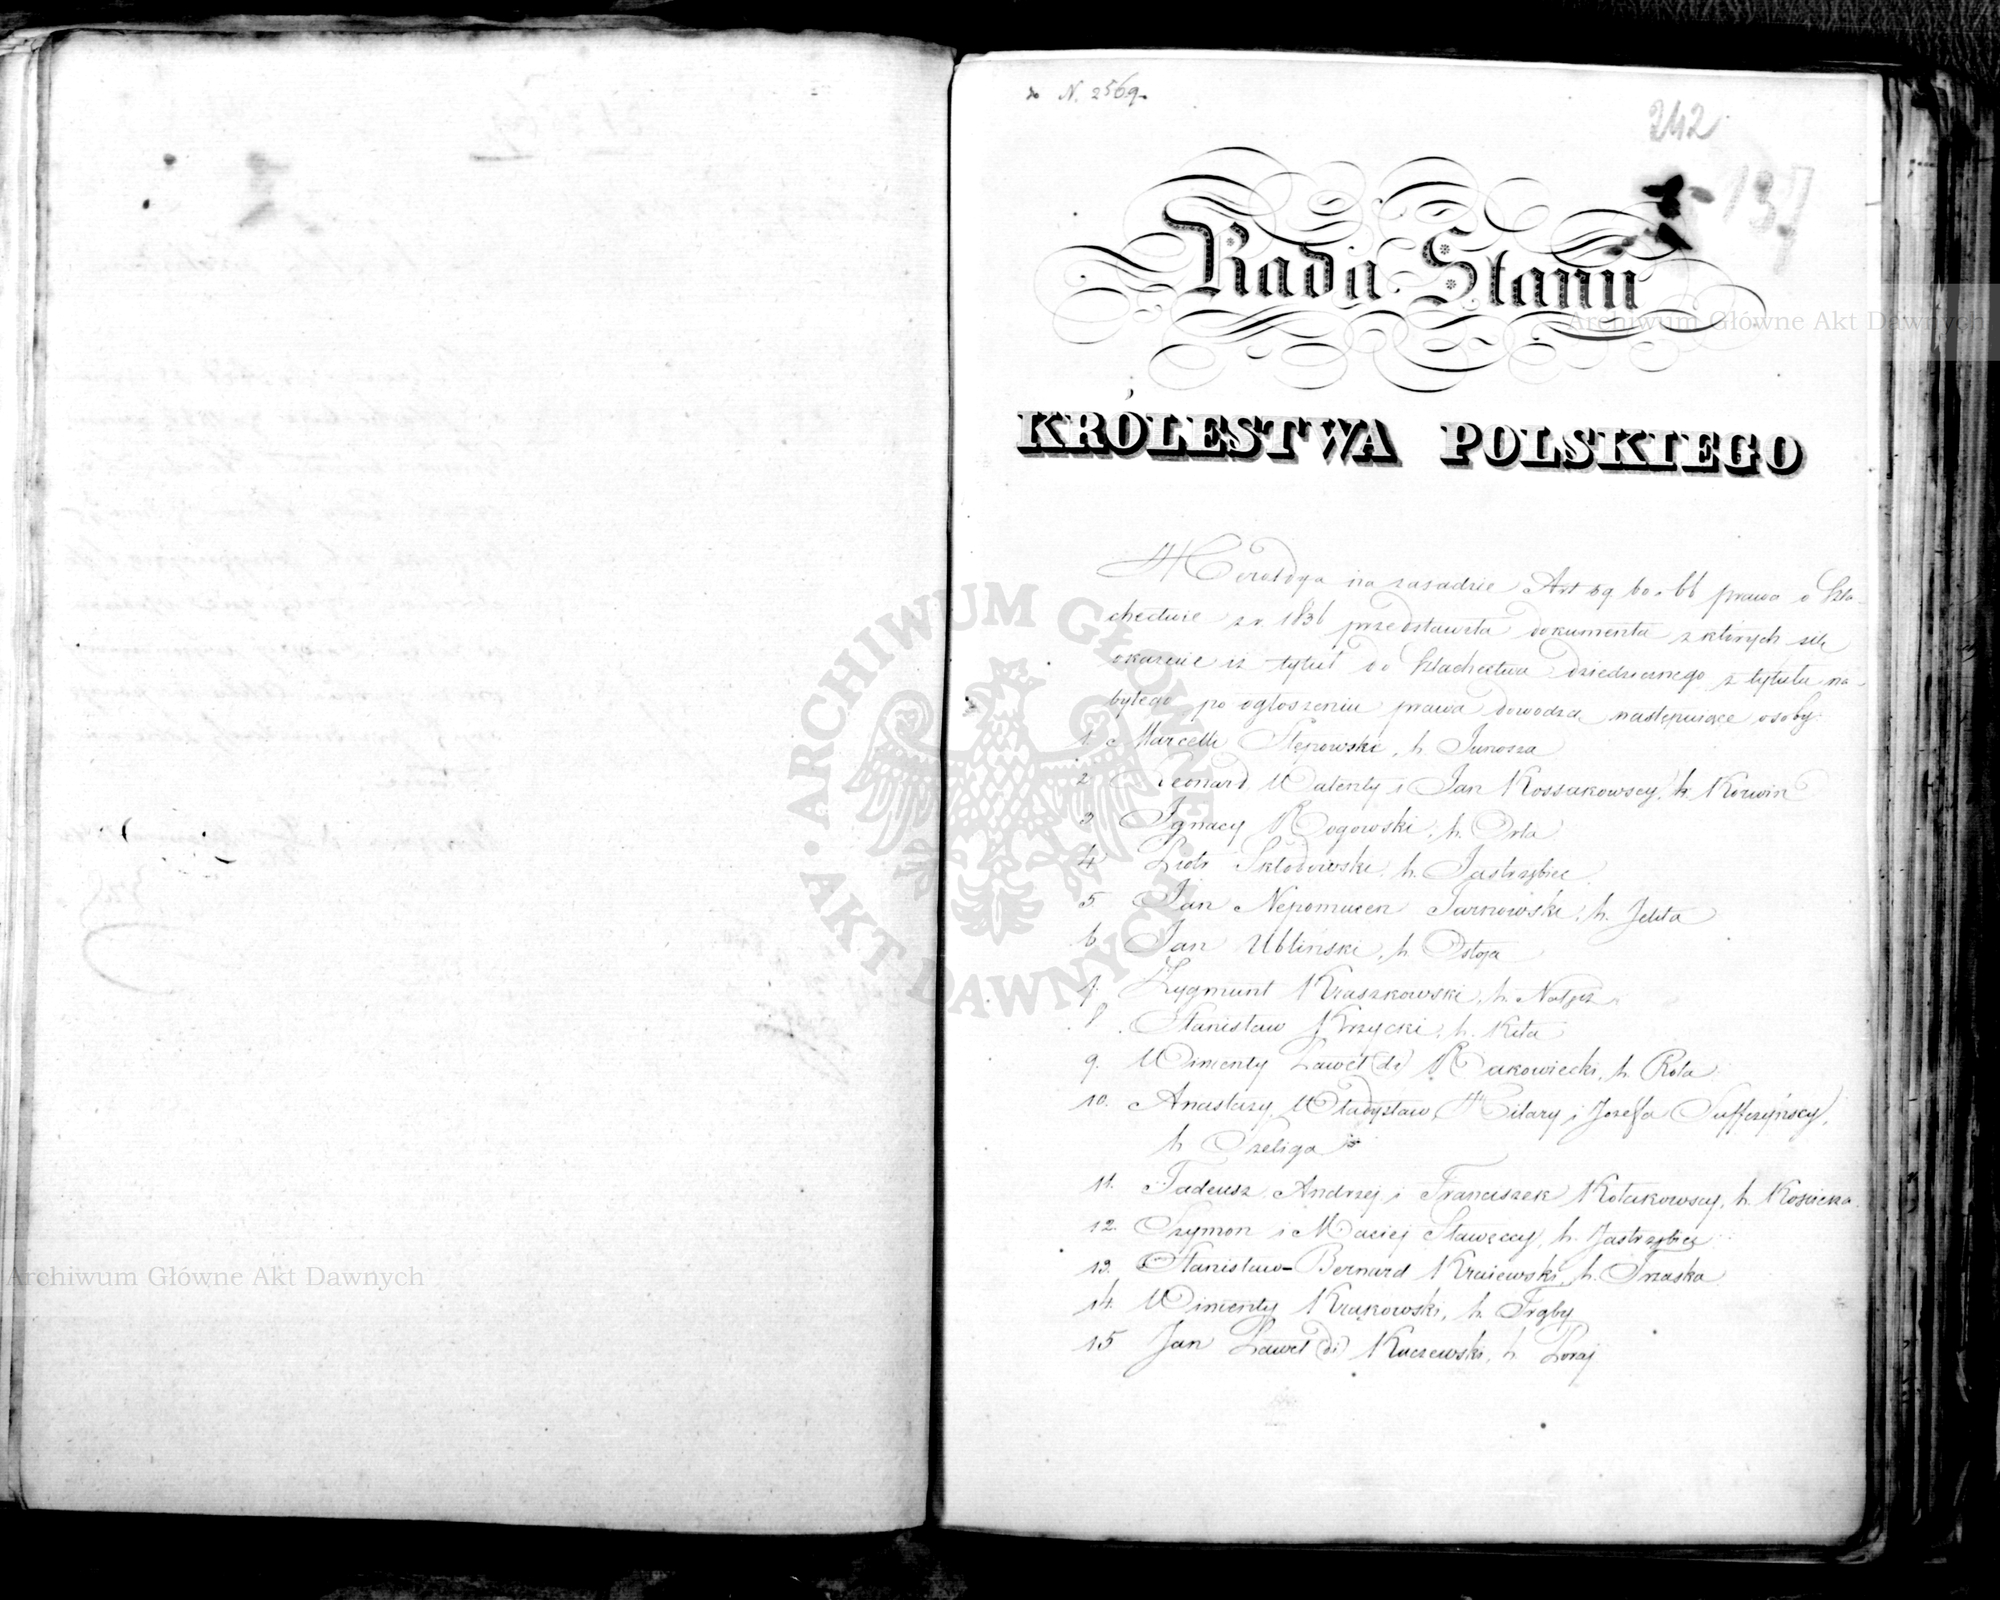 N. 2569
242
137
Rada Stanu
KRÓLESTWA POLSKIEGO
Heroldya na zasadzie Art 59. 60. 61 prawa o Szla-
chectwie z r. 1836 przedstawiła dokumenta z których się
okazuie iż tytuł do Szlachectwa dziedzicznego z tytułu na-
bytego po ogłoszeniu prawa dowodzą następuiące osoby
1. Marcelli Stępowski, h. Junosza
2. Leonard, Walenty i Jan Kossakowscy, h. Korwin
3. Ignacy Rogowski, h. Orla
4. Piotr Skłodowski, h. Jastrzębiec
5. Jan Nepomucen Tarnowski, h. Jelita
6. Jan Ubliński, h. Ostoja
7. Zygmunt Kraszkowski, h. Nałęcz
8. Stanisław Krzycki, h. Kita
9. Wincenty Paweł (2i) Rakowiecki, h. Rola
10. Anastazy, Władysław, Hilary i Jozefa Suffczyńscy,
h. Szeliga
11. Tadeusz, Andrzej i Franciszek Kołakowscy, h. Kościesza
12. Szymon i Maciej Sławęccy, h. Jastrzębiec
13. Stanisław-Bernard Kraiewski, h. Trzaska
14. Wincenty Krukowski, h. Trąby
15 Jan Paweł (2i) Kuczewski, h. Poraj
ARCHIWUM GŁÓWNE AKT DAWNYCH
Archiwum Główne Akt Dawnych
Archiwum Główne Akt Dawnych